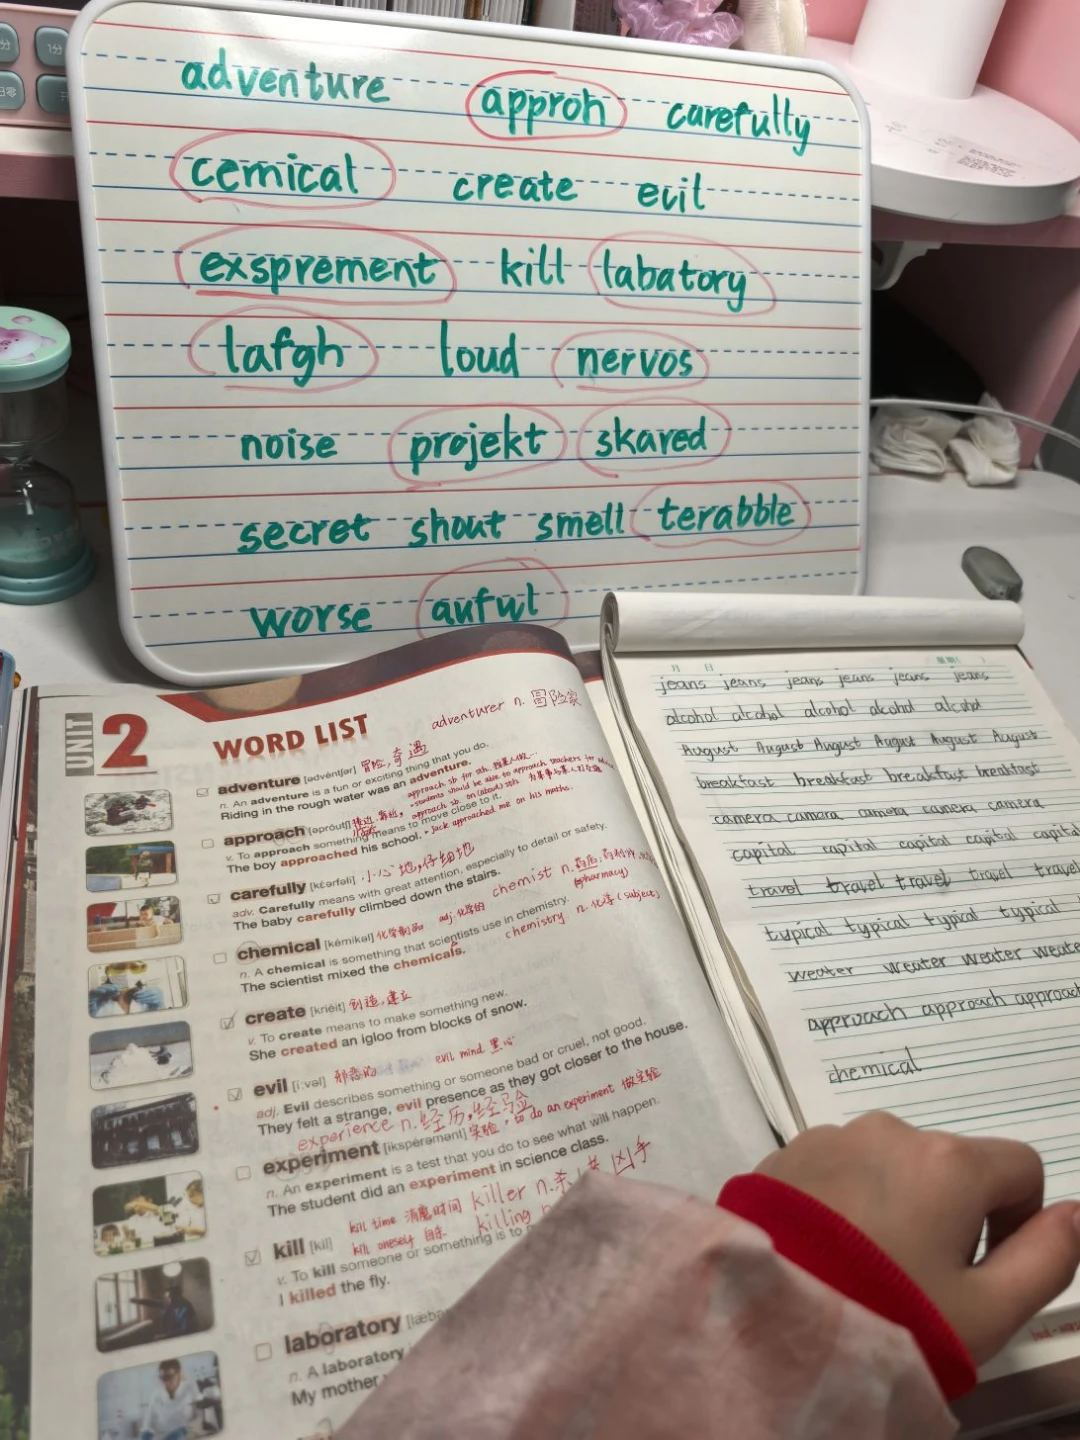 adventure approh carefully
cemical create evil
exsprement kill labatory
lafgh loud nervos
noise projekt skared
secret shout smell terabble
worse aufwl
UNIT 2 WORD LIST
adventurer n. 冒险家
adventure [ədvéntʃər] 冒险,奇遇
n. An adventure is a fun or exciting thing that you do.
Riding in the rough water was an adventure.
approach [əpróutʃ] 接近,靠近,
v. To approach something means to move close to it.
The boy approached his school. • Jack approached me on his maths.
carefully [kɛ́ərfəli] 小心地,仔细地
adv. Carefully means with great attention, especially to detail or safety.
The baby carefully climbed down the stairs.
chemist n.
(pharmacy)
chemical [kémikəl] 化学制品 adj.化学的
chemistry n.化学(subject)
n. A chemical is something that scientists use in chemistry.
The scientist mixed the chemicals.
create [kriéit] 创造,建立
v. To create means to make something new.
She created an igloo from blocks of snow.
evil [í:vəl] 邪恶的 evil mind 黑心
adj. Evil describes something or someone bad or cruel, not good.
They felt a strange, evil presence as they got closer to the house.
experience n.经历,经验
experiment [ikspérəmənt] 实验 to do an experiment 做实验
n. An experiment is a test that you do to see what will happen.
The student did an experiment in science class.
kill time 消磨时间 killer n.杀 凶手
kill [kil] kill oneself 自杀 killing
v. To kill someone or something is to
I killed the fly.
laboratory
n. A laboratory
My mother
月 日
jeans jeans jeans jeans jeans jeans
alcohol alcohol alcohol alcohol alcohol
August August August August August August
breakfast breakfast breakfast breakfast
camera camera camera camera camera
capital capital capital capital capital
travel travel travel travel travel
typical typical typical typical
weater weater weater weate
approach approach approach
chemical